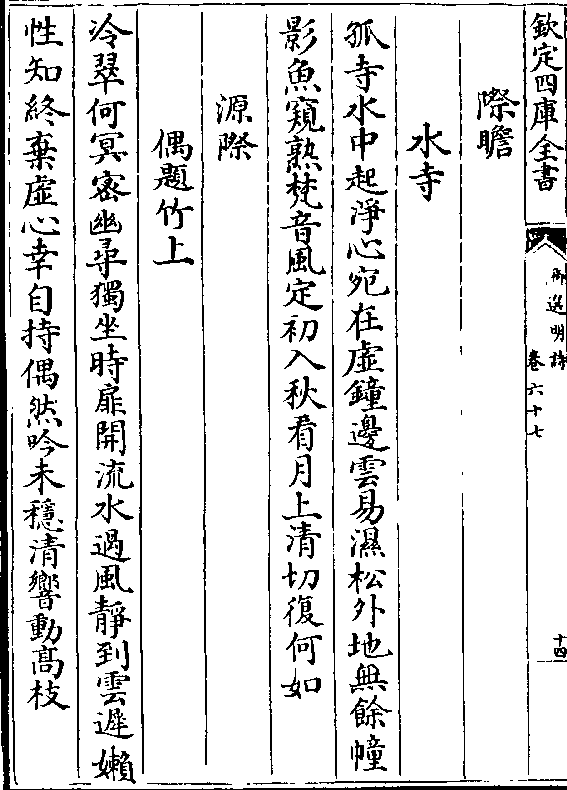 欽定四庫全書
御選明詩
卷六十七
十四
際瞻
水寺
孤寺水中起淨心宛在虛鐘邊雲易濕松外地無餘幢
影魚窺熟梵音風定初入秋看月上清切復何如
源際
偶題竹上
冷翠何冥密幽尋獨坐時扉開流水過風靜到雲遲嬾
性知終棄虛心幸自持偶然吟未穩清響動髙枝